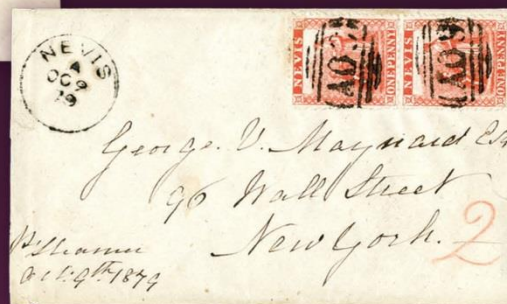 NEVIS
A
OC 9
79
NEVIS
ONE PENNY
NEVIS
ONE PENNY
A09
A09
George. V. Maynard Esq
96 Wall Street
New York.
2
Steamer
Oct. 9th 1879